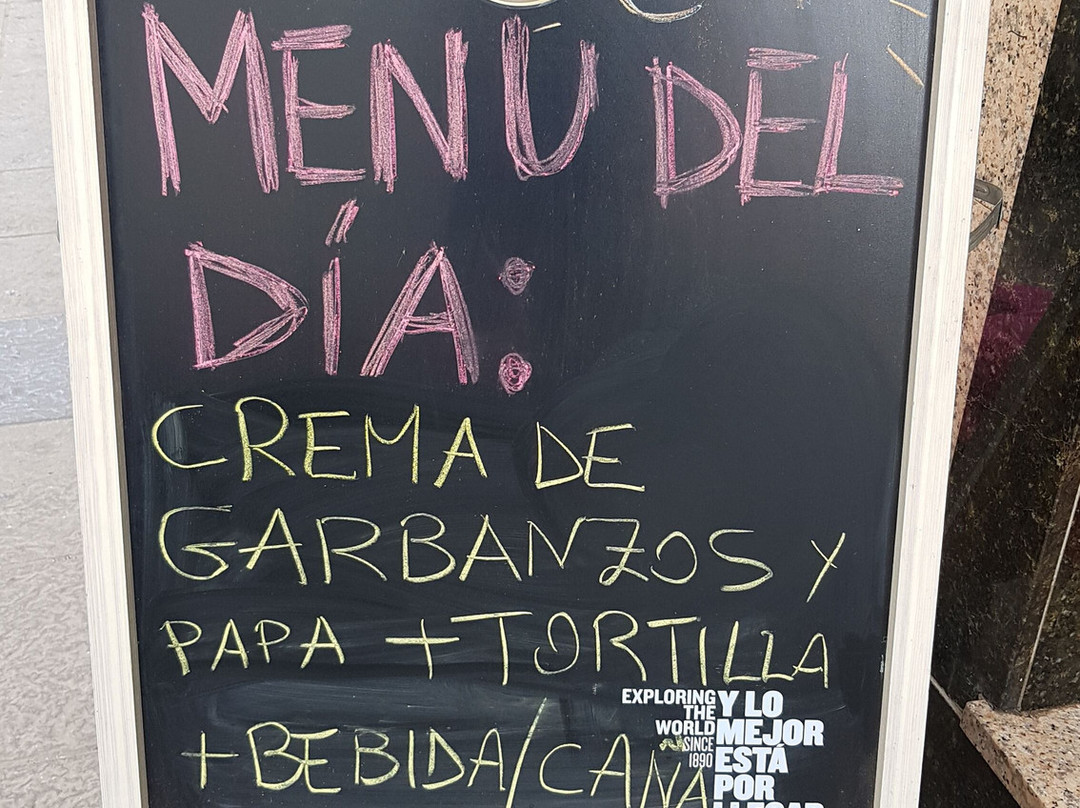 MENÚ DEL
DÍA:
CREMA DE
GARBANZOS Y
PAPA + TORTILLA
+ BEBIDA/CAÑA
EXPLORING
THE
WORLD
SINCE
1890
Y LO
MEJOR
ESTÁ
POR
LLEGAR